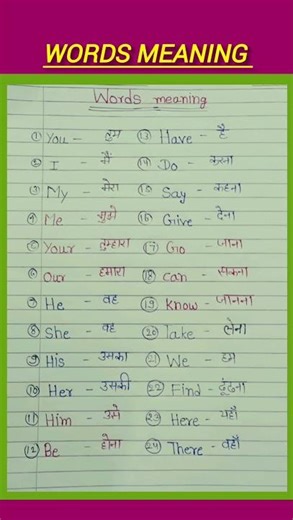 WORDS MEANING
Words meaning
① You - तुम ⑬ Have - है
② I - मैं ⑭ Do - करना
③ My - मेरा ⑮ Say - कहना
④ Me - मुझे ⑯ Give - देना
⑤ Your - तुम्हारा ⑰ Go - जाना
⑥ Our - हमारा ⑱ Can - सकना
⑦ He - वह ⑲ Know - जानना
⑧ She - वह ⑳ Take - लेना
⑨ His - उसका ㉑ We - हम
⑩ Her - उसकी ㉒ Find - ढूंढना
⑪ Him - उसे ㉓ Here - यहाँ
⑫ Be - होना ㉔ There - वहाँ